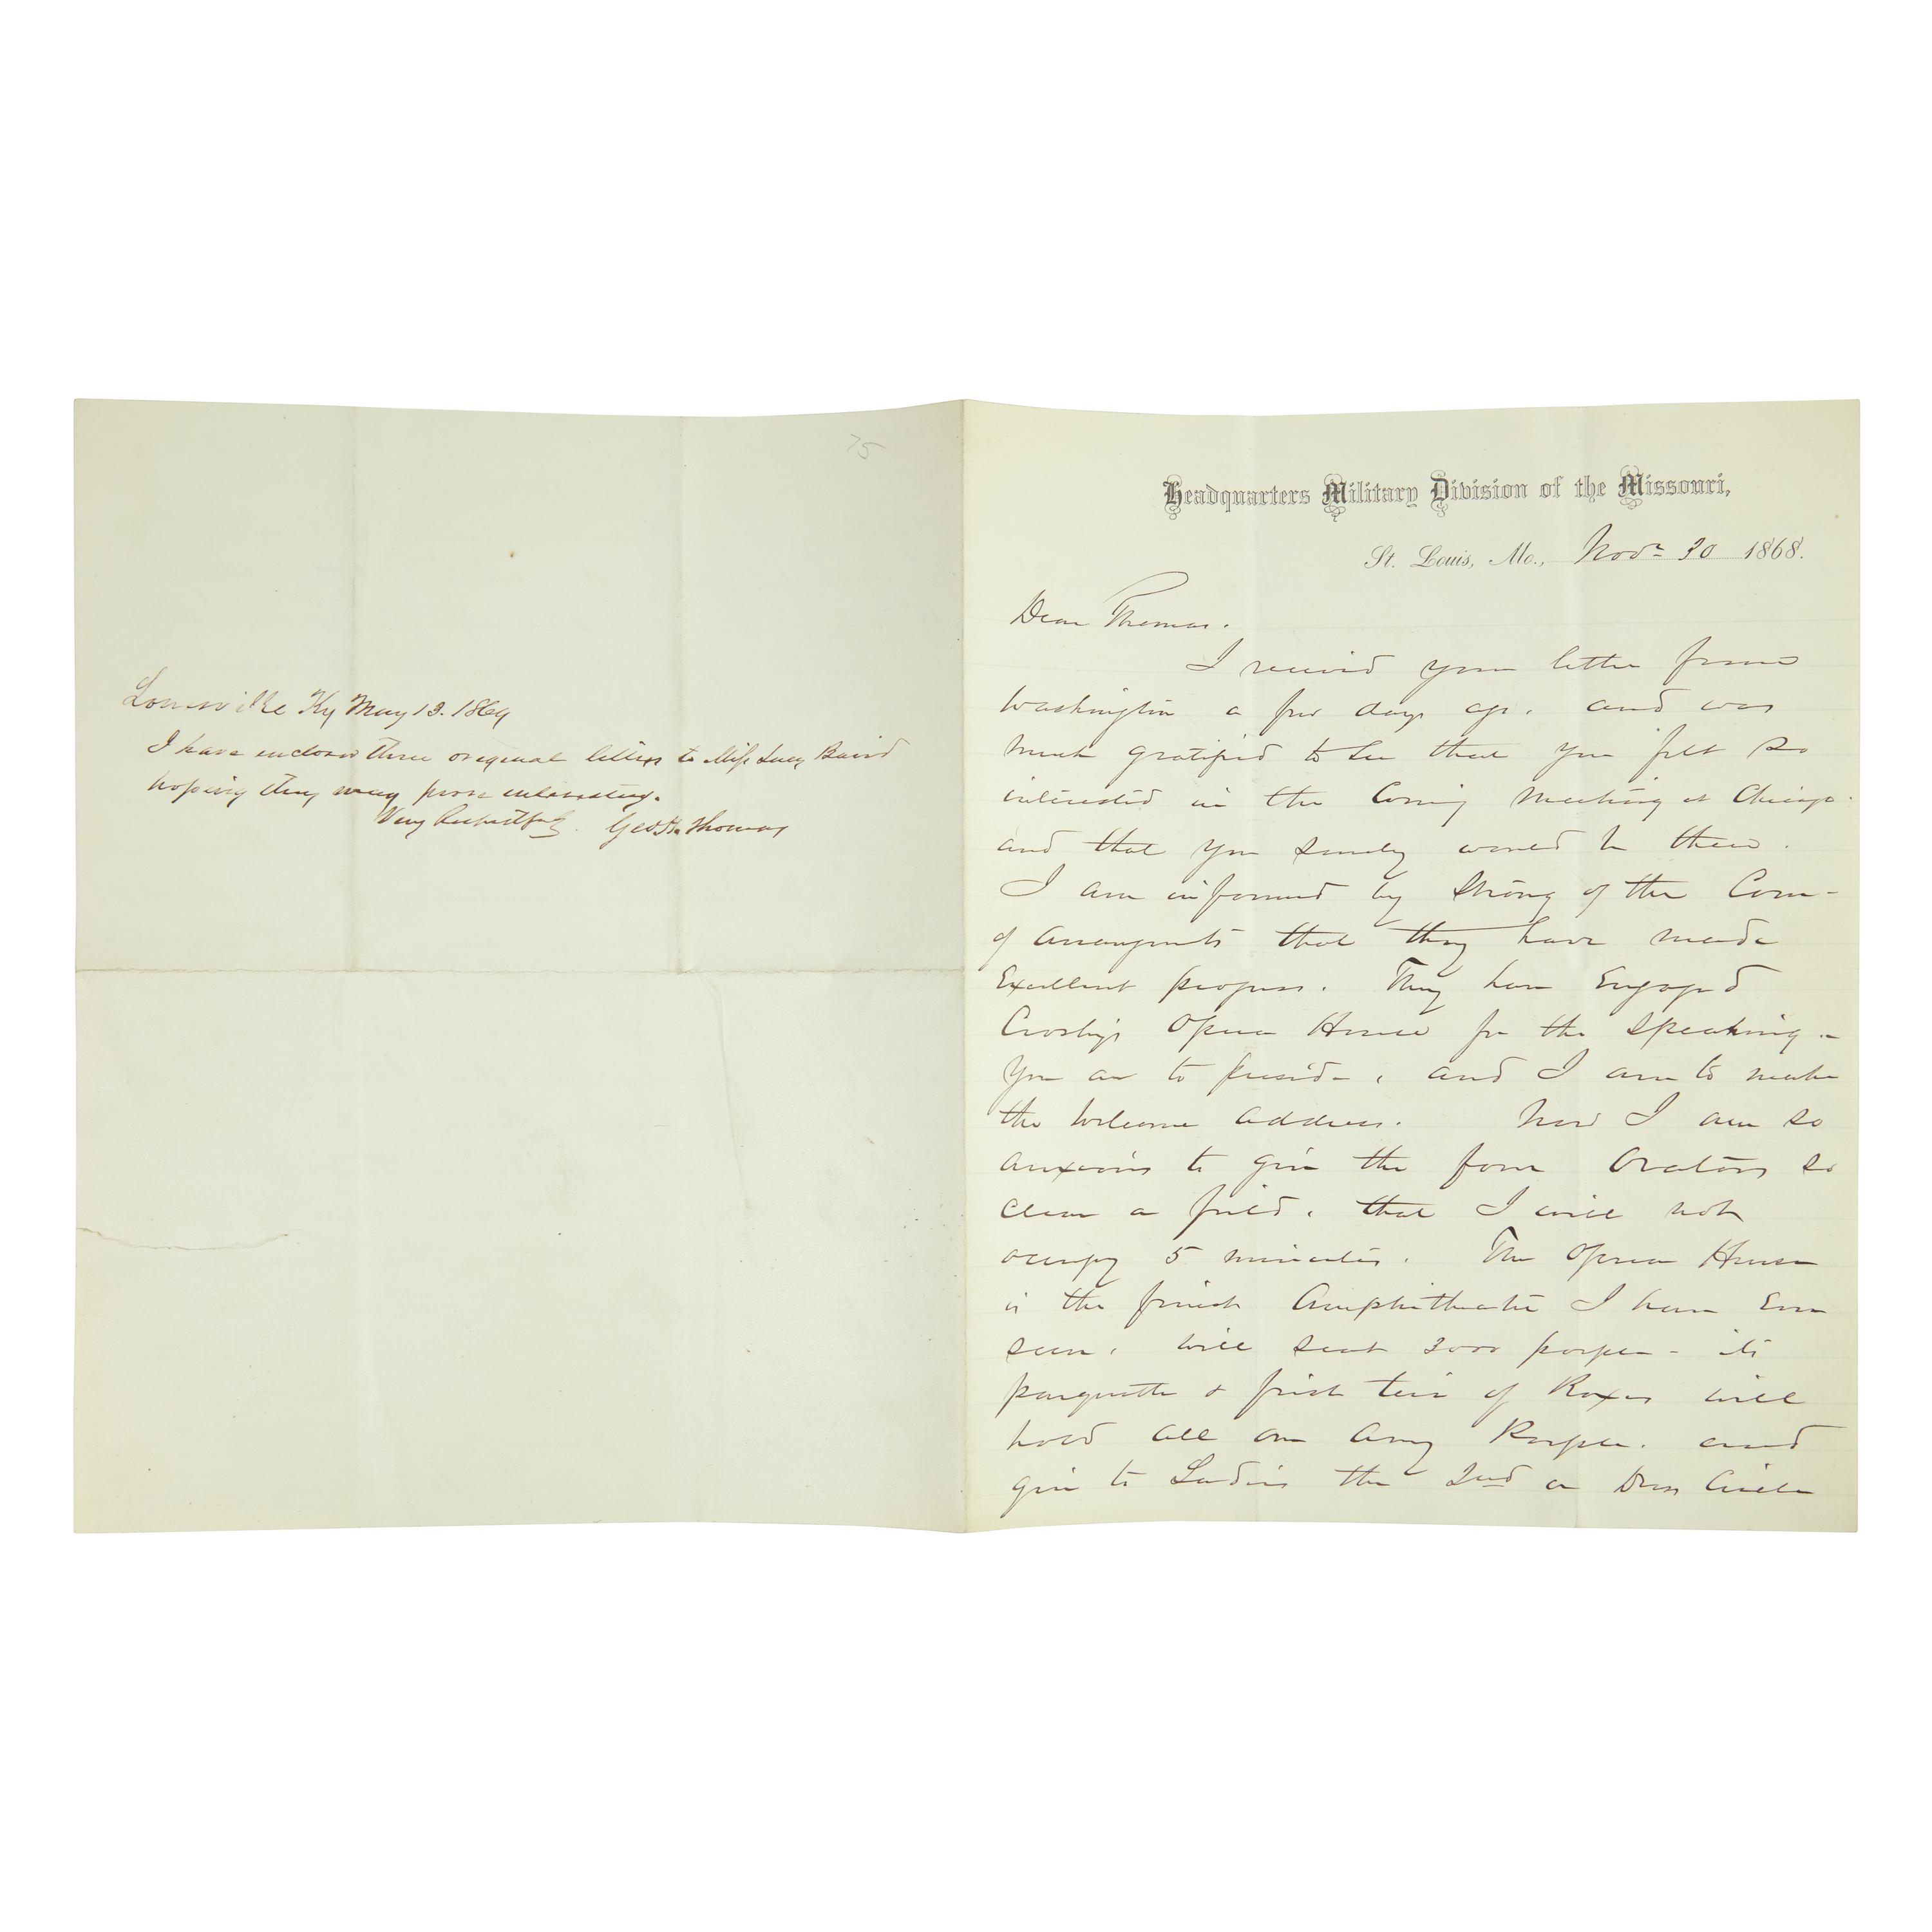 75
Louisville Ky May 13. 1869
I have enclosed three original letters to Miss Lucy Baird
hoping they may prove interesting.
Very Respectfully. Geo. H. Thomas
Headquarters Military Division of the Missouri,
St. Louis, Mo., Novr 30 1868.
Dear Thomas.
I received your letter from
Washington a few days ago, and was
much gratified to see that you felt so
interested in the Coming Meeting at Chicago.
and that you surely would be there.
I am informed by Strong of the Com-
of Arrangmts that they have made
Excellent progress. They have Engaged
Crosby's Opera House for the Speaking -
You are to preside, and I am to make
the Welcome address. Now I am so
anxious to give the four Orators so
clear a field, that I will not
occupy 5 minutes. The Opera House
is the finest Amphitheatre I have Ever
seen, will seat 3000 people - its
parquette & first tier of Boxes will
hold all our Army People, and
give to Ladies the 2nd or Dress Circle